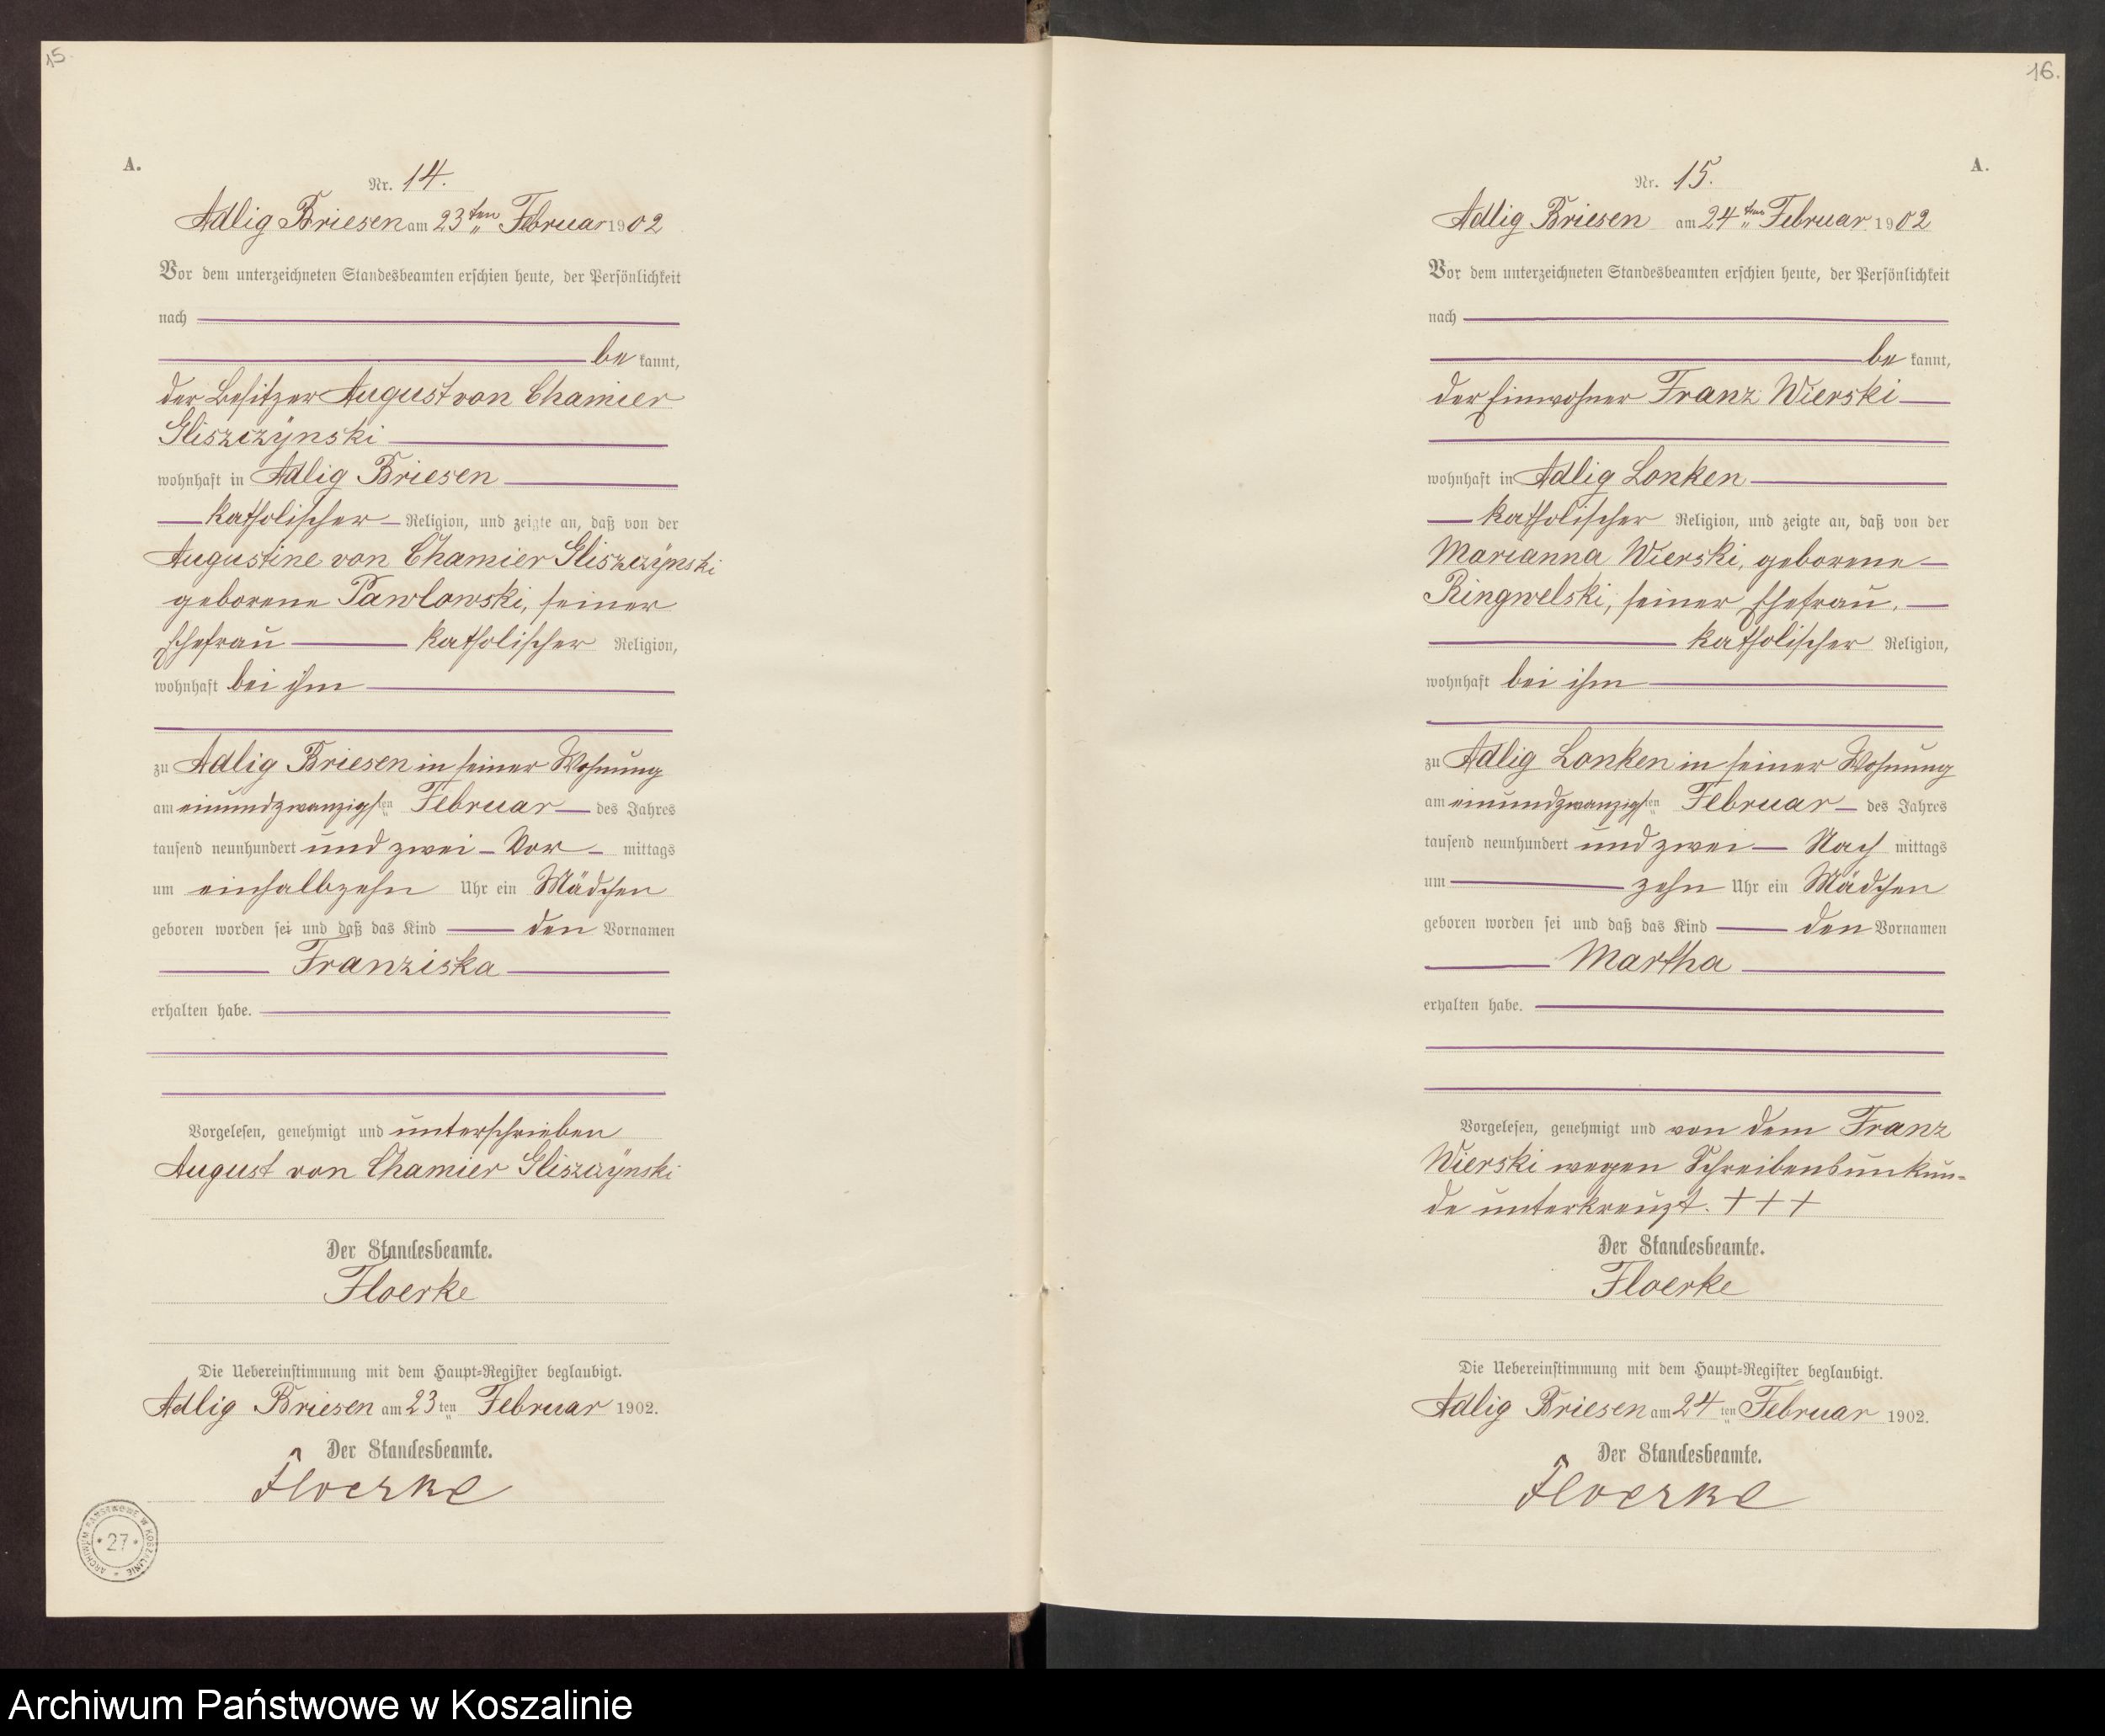 15.
A.
Nr. 14.
Adlig Briesen am 23ten Februar 1902
Vor dem unterzeichneten Standesbeamten erschien heute, der Persönlichkeit
nach
be kannt,
der Besitzer August von Chamier
Gliszczynski
wohnhaft in Adlig Briesen
katholischer Religion, und zeigte an, daß von der
Augustine von Chamier Gliszczynski
geborene Pawlowski, seiner
Ehefrau katholischer Religion,
wohnhaft bei ihm
zu Adlig Briesen in seiner Wohnung
am einundzwanzigsten Februar des Jahres
tausend neunhundert und zwei Vor mittags
um einhalbzehn Uhr ein Mädchen
geboren worden sei und daß das Kind den Vornamen
Franziska
erhalten habe.
Vorgelesen, genehmigt und unterschrieben
August von Chamier Gliszczynski
Der Standesbeamte.
Floerke
Die Uebereinstimmung mit dem Haupt-Register beglaubigt.
Adlig Briesen am 23ten Februar 1902.
Der Standesbeamte.
Floerke
ARCHIWUM PAŃSTWOWE W KOSZALINIE
* 27 *
16.
A.
Nr. 15.
Adlig Briesen am 24ten Februar 1902
Vor dem unterzeichneten Standesbeamten erschien heute, der Persönlichkeit
nach
be kannt,
der Einwohner Franz Wierski
wohnhaft in Adlig Lonken
katholischer Religion, und zeigte an, daß von der
Marianna Wierski, geborene
Ringwelski, seiner Ehefrau,
katholischer Religion,
wohnhaft bei ihm
zu Adlig Lonken in seiner Wohnung
am einundzwanzigsten Februar des Jahres
tausend neunhundert und zwei Nach mittags
um zehn Uhr ein Mädchen
geboren worden sei und daß das Kind den Vornamen
Martha
erhalten habe.
Vorgelesen, genehmigt und von dem Franz
Wierski wegen Schreibensunkun-
de unterkreuzt. + + +
Der Standesbeamte.
Floerke
Die Uebereinstimmung mit dem Haupt-Register beglaubigt.
Adlig Briesen am 24ten Februar 1902.
Der Standesbeamte.
Floerke
Archiwum Państwowe w Koszalinie